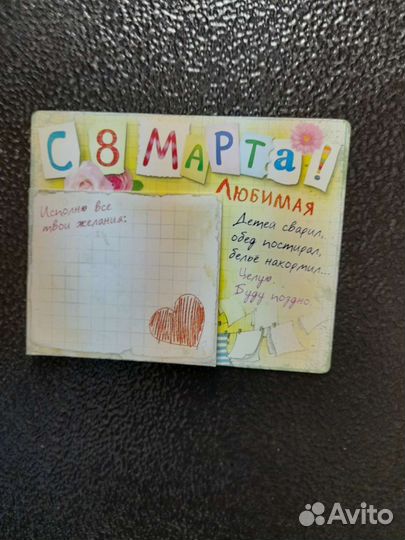 С 8 МАРТА!
ЛЮБИМАЯ
Исполню все
твои желания:
Детей сварил,
обед постирал,
бельё накормил...
Целую.
Буду поздно.
Avito